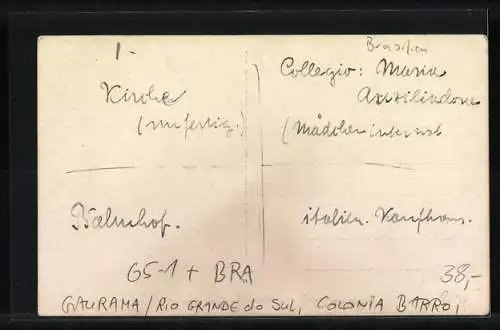 1-
Brasilien
Kirche
(unfertig)
Collegio: Maria
Auxiliadora
(Mädcheninternat
Bahnhof.
italien. Kaufhaus.
G5-1 + BRA
38,-
GAURAMA / RIO GRANDE do SUL, COLONIA BARRO,